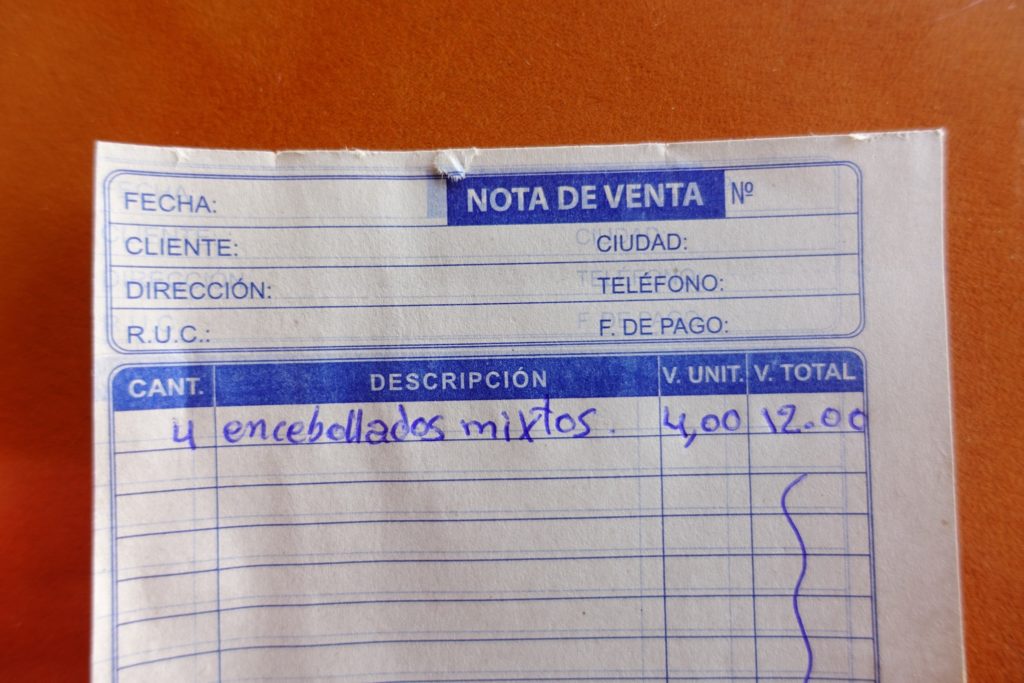 FECHA: NOTA DE VENTA Nº
CLIENTE: CIUDAD:
DIRECCIÓN: TELÉFONO:
R.U.C.: F. DE PAGO:
CANT. DESCRIPCIÓN V. UNIT. V. TOTAL
4 encebollados mixtos. 4,00 12.00